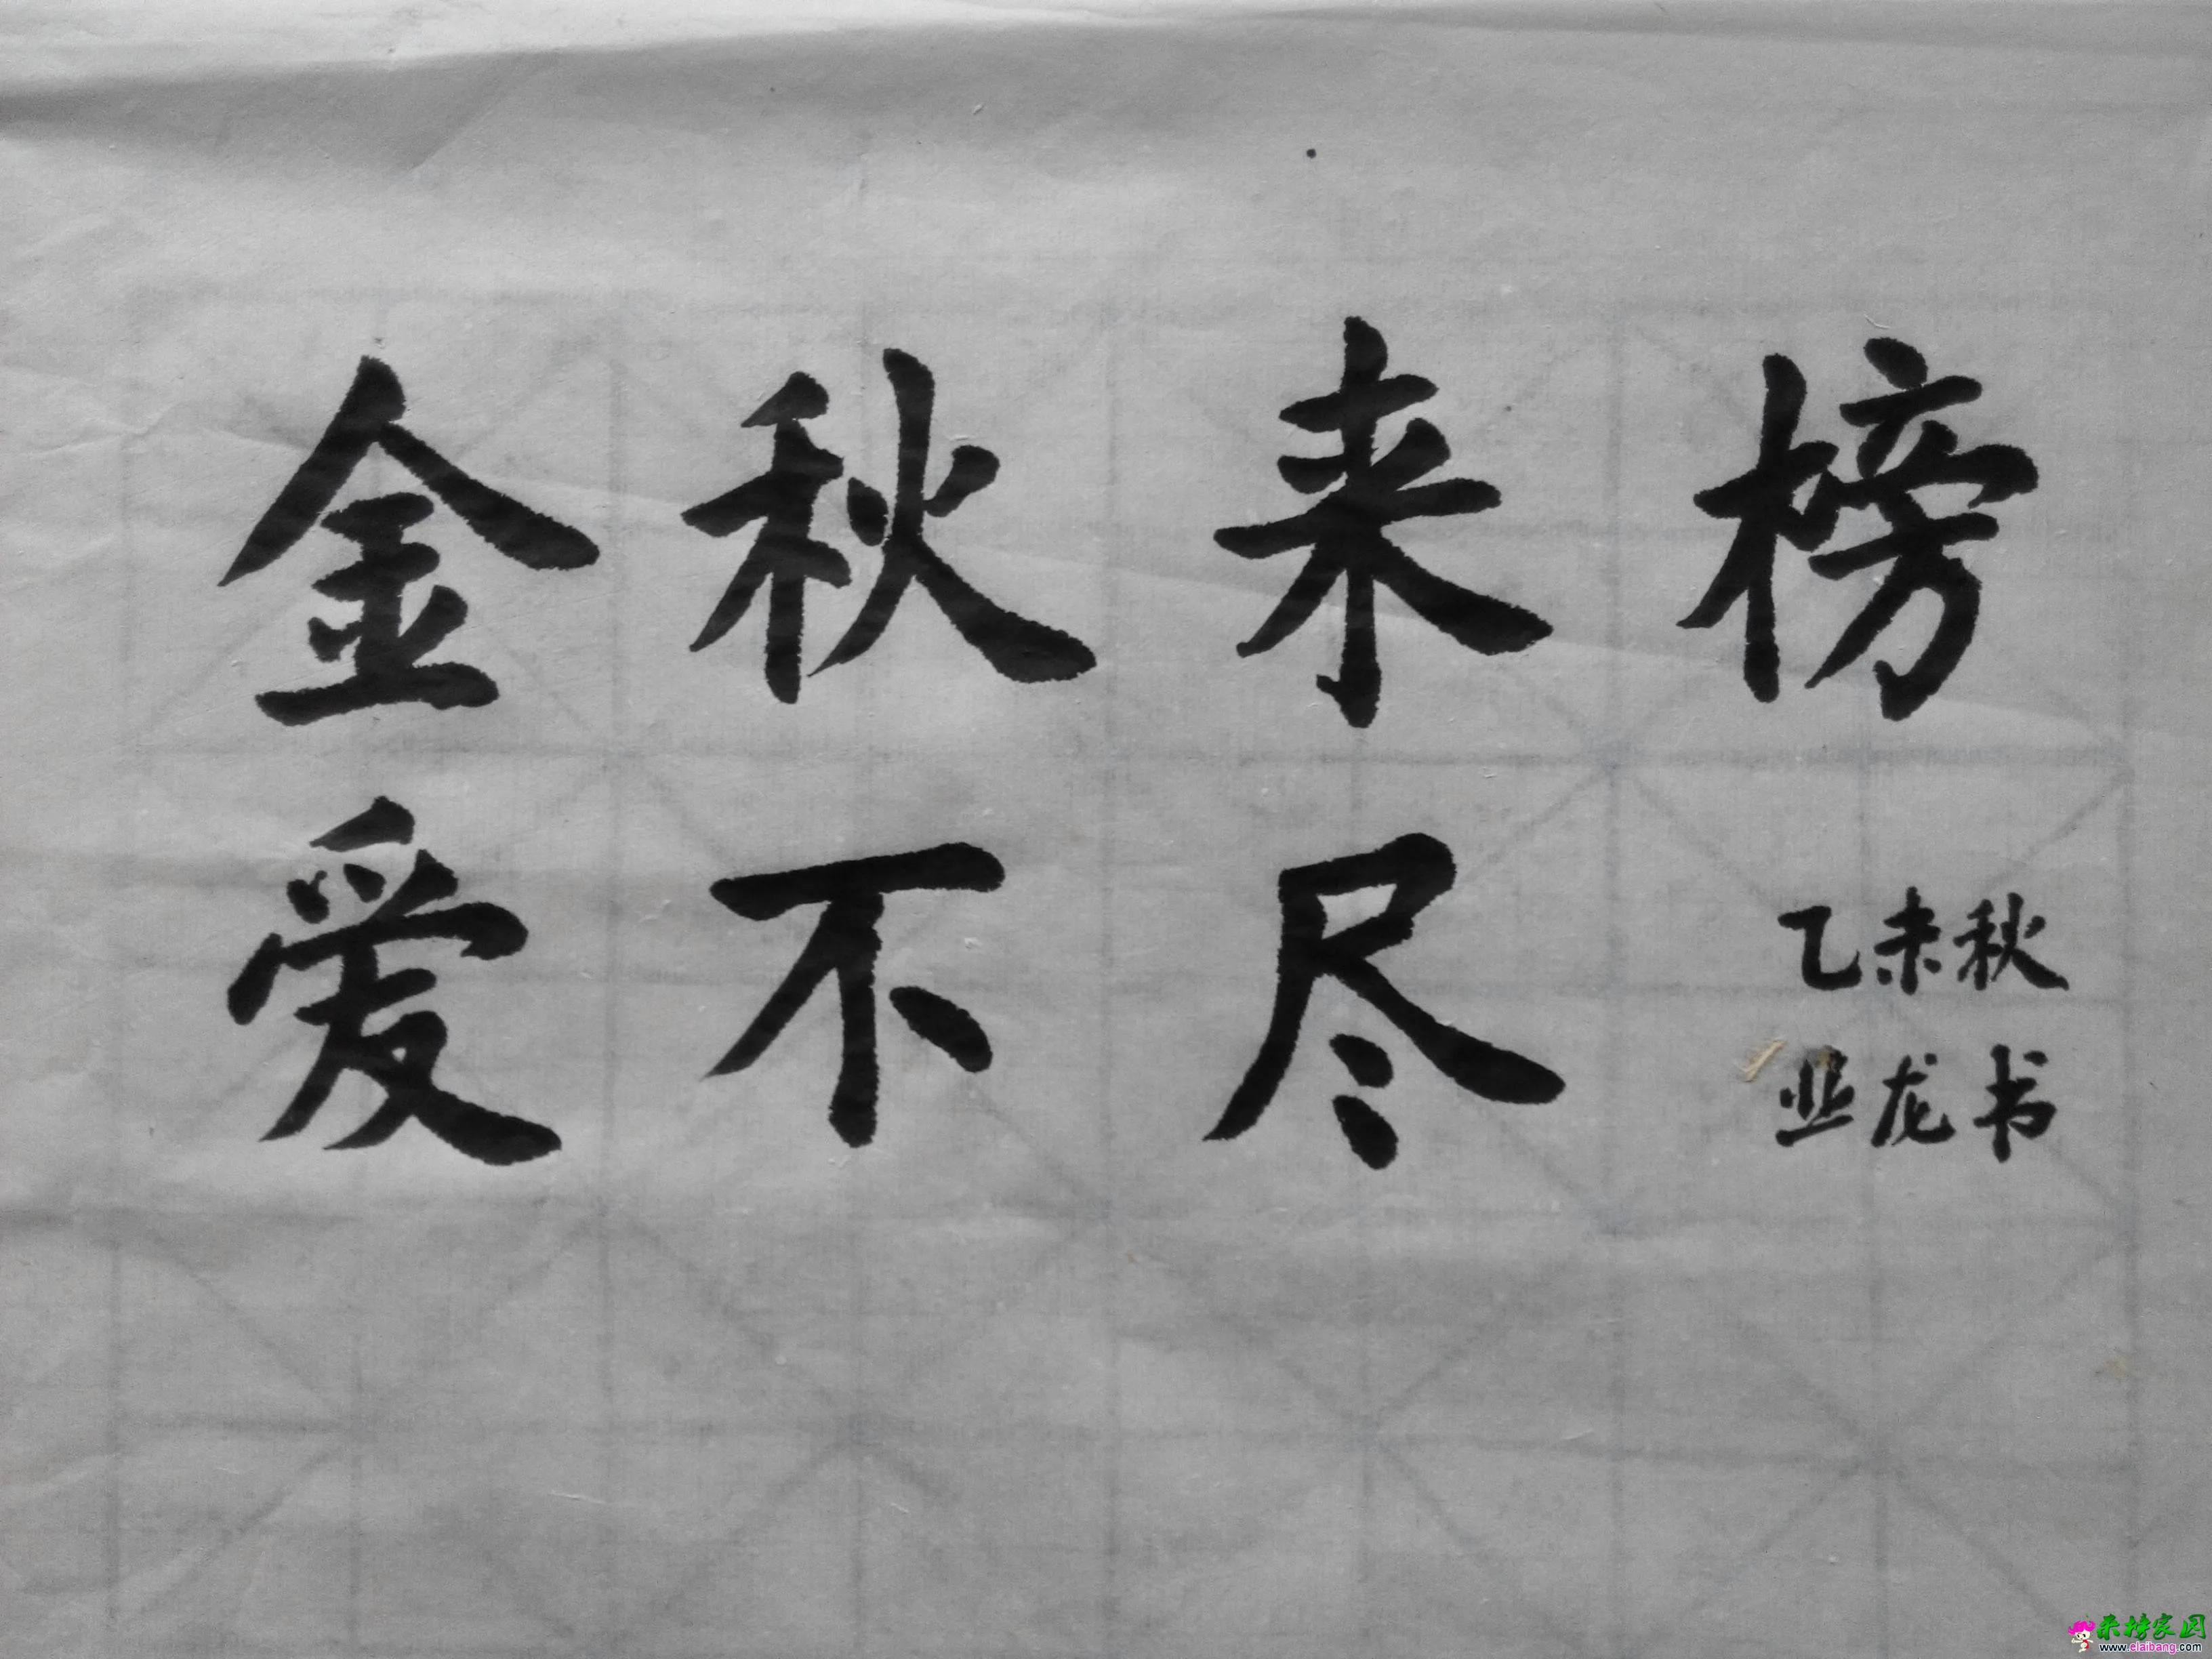 金秋来榜
爱不尽
乙未秋
亚龙书
来榜家园
www.elaibang.com